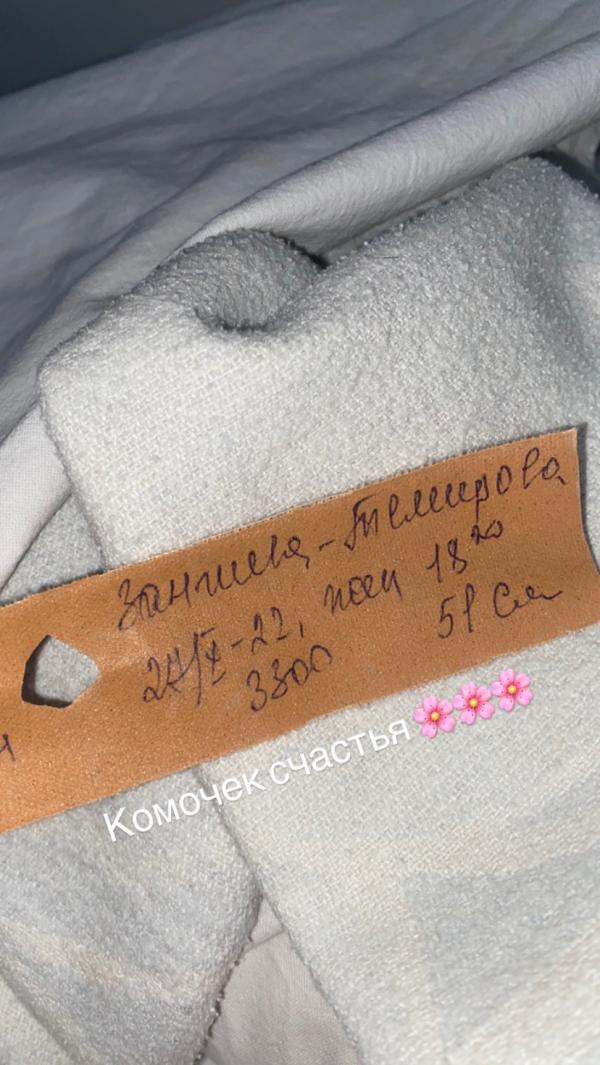 Зангиева-Темирова
27/X-22, жен 18²⁰
3300 51 см
Комочек счастья 🌸🌸🌸